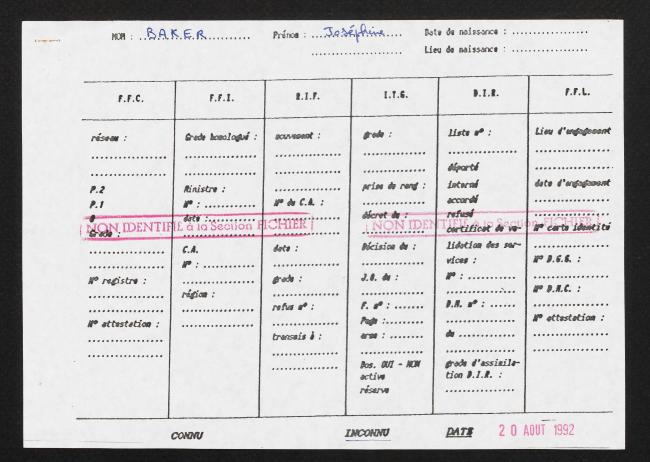 NOM : BAKER Prénom : Joséphine Date de naissance :
Lieu de naissance :
F.F.C. F.F.I. R.I.F. I.T.G. D.I.R. F.F.L.
réseau : Grade homologué : mouvement : grade : liste n° : Lieu d'engagement
déporté
P.2 Ministre : prise de rang : interné date d'engagement
P.1 N° : N° de C.A. : accordé
0 date : décret du : refusé
NON IDENTIFIE à la Section FICHIER NON IDENTIFIE à la Section FICHIER
Grade : certificat de va- N° carte identité
C.A. date : Décision du : lidation des ser-
N° : vices : N° D.G.G. :
N° registre : grade : J.O. du : N° :
région : N° D.A.C. :
refus n° : F. n° : D.M. n° :
N° attestation : Page : N° attestation :
transmis à : arme : du
Dos. OUI - NON grade d'assimila-
active tion D.I.R. :
réserve
CONNU INCONNU DATE 20 AOUT 1992